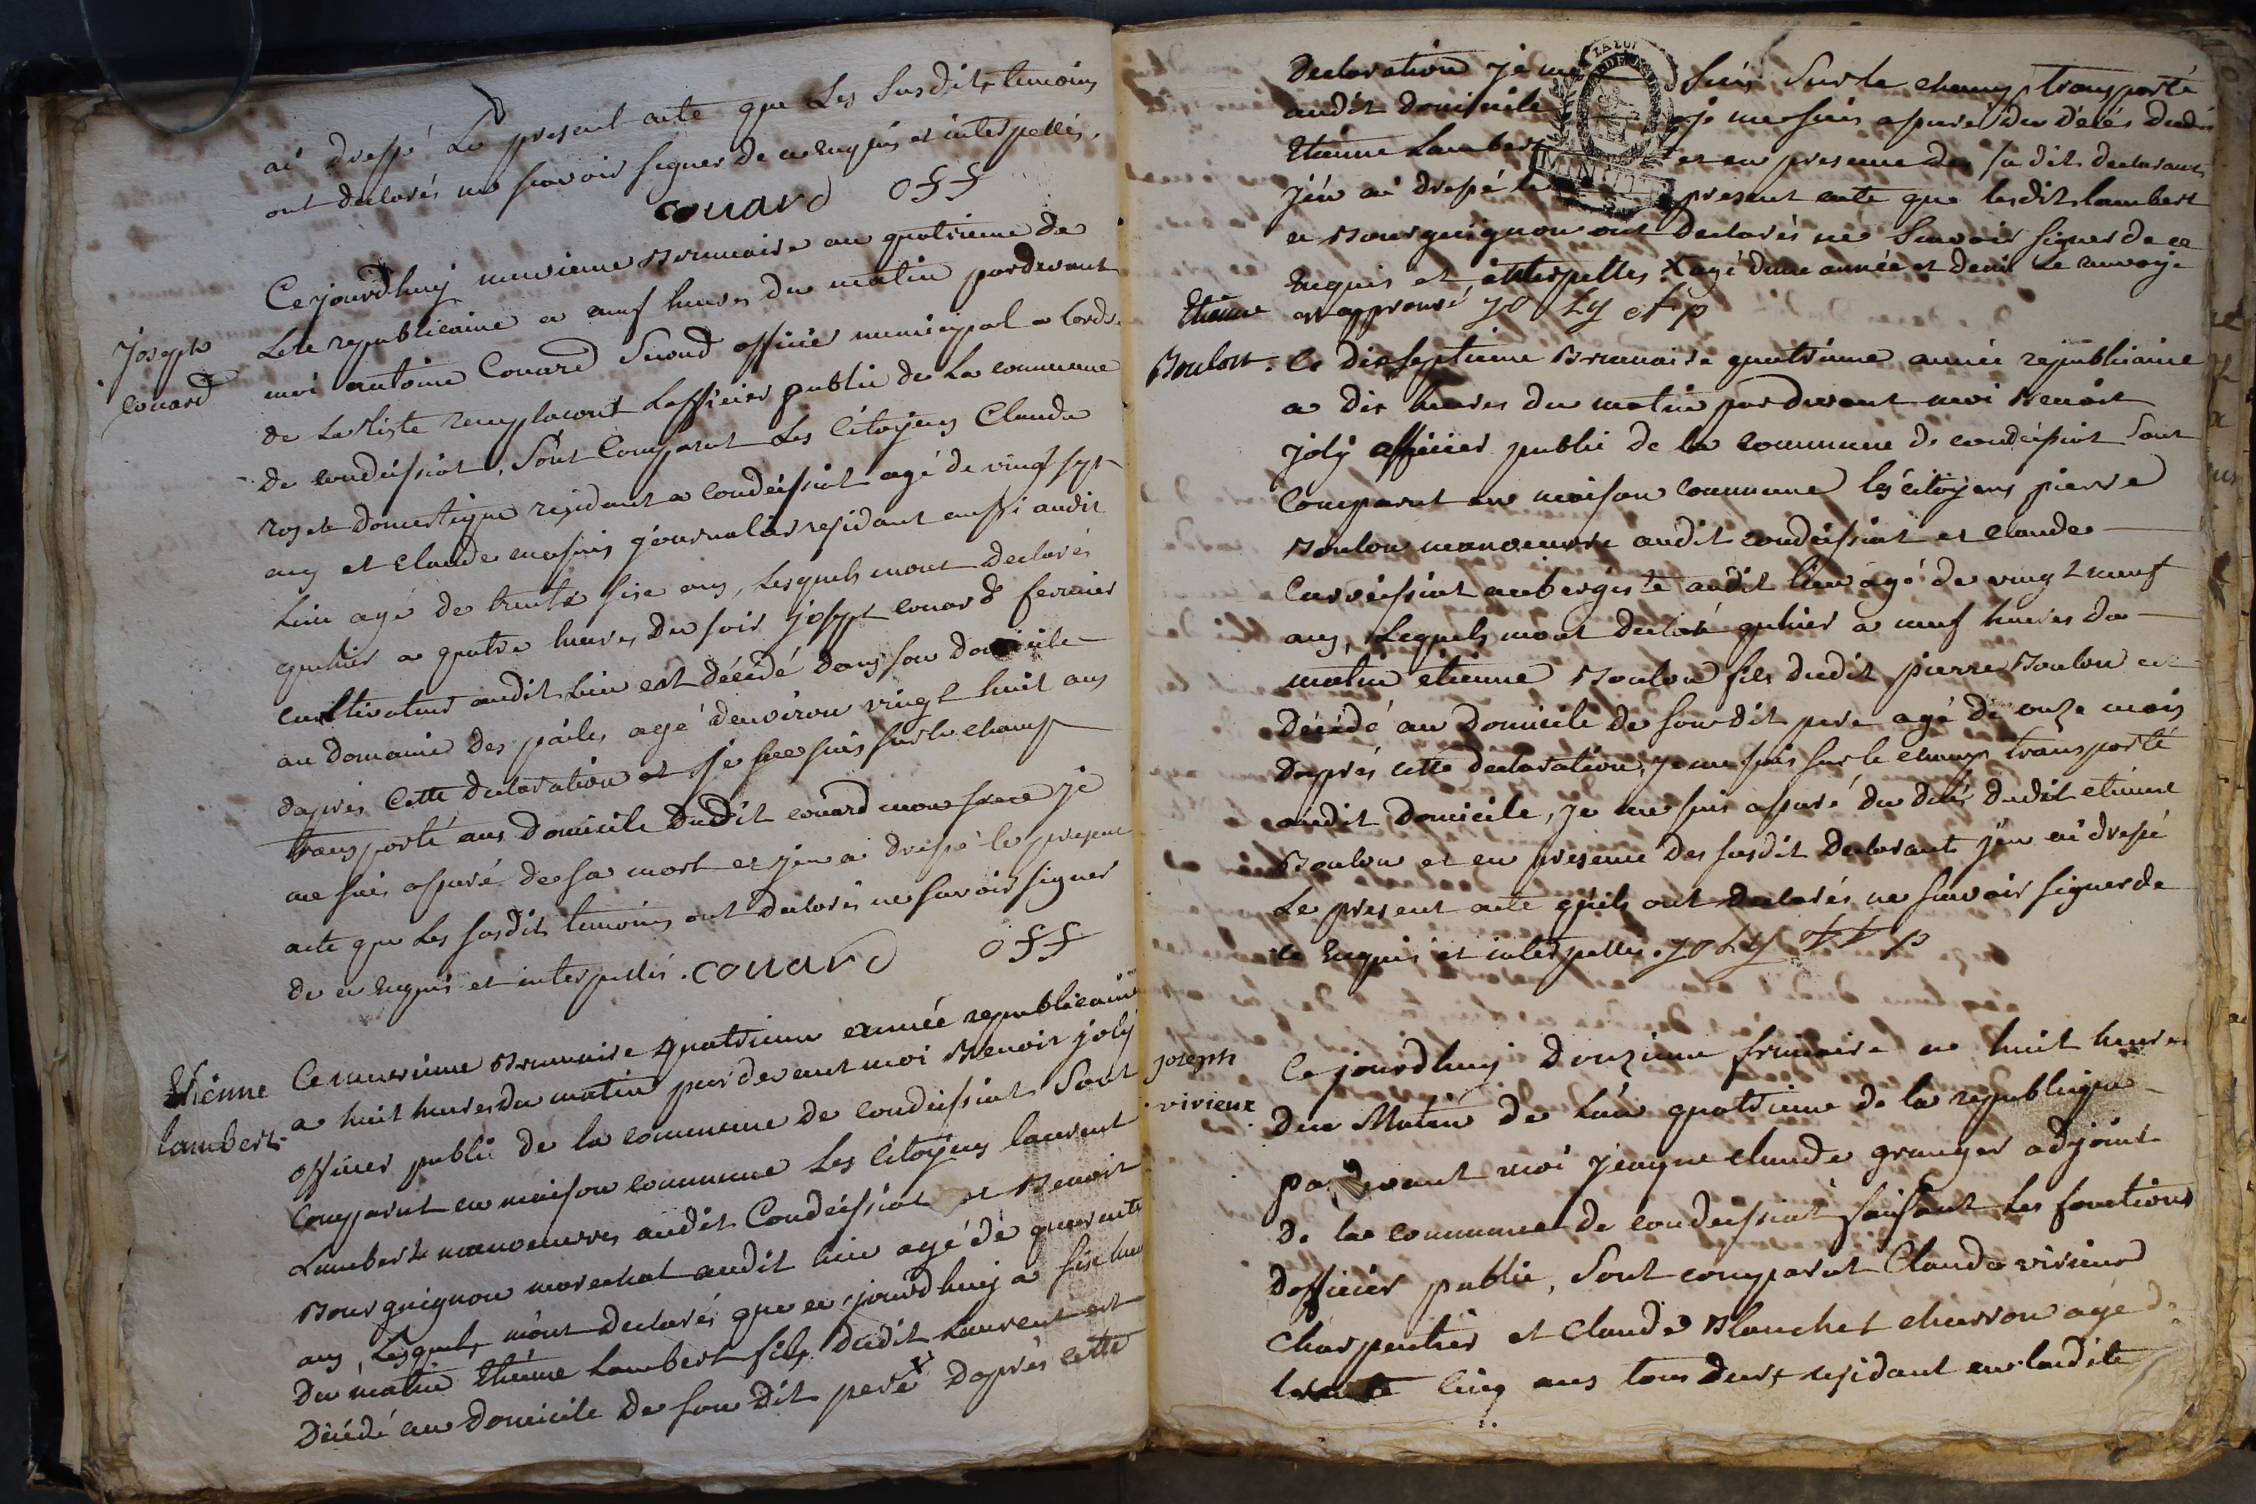 ai dressé Le present acte que Les Susdits temoins
ont declarés ne scavoir signer de ce enquis et interpellés.
couard off
Joseph
couard
Ce jourdhuy neuvieme Brumaire an quatrieme de
Lere republicaine a neuf heures du matin pardevant
moi antoine Couard Second officier municipal a lordre
de La liste remplacant Lofficier public de La commune
de condeissiat, Sont Comparut Les Citoyens Claude
roset domestique residant a condeissiat agé de vingt sept
ans et Claude journalier residant aussi audit
Lieu agé de trente sixe ans, Lesquels mont declarés
quehier a quatre heures du soir joseph couard fermier
cultivateur audit Lieu est décédé dans son domicile
au domaine des agé denviron vingt huit ans
daprès Cette declaration et je me suis sur le champ
transporté aus domicile dudit couard mon frere je
me suis assuré de sa mort et jen ai dressé le present
acte que Les susdits temoins ont declarés ne savoir signer
de ce enquis et interpellés. couard off
Etienne
lambert
Ce neuvieme Brumaire quatrieme année republicaine
a huit heures du matin pardevant moi Benoit joly
officier public de la commune de condeissiat Sont
Comparut en maison commune Les Citoyens laurent
Lambert manoeuvres audit Condeissiat et Benoit
Bourguignon marechal audit lieu agé de quarante
ans, Lesquels mont declarés que ce jourdhuy a six heures
du matin Etienne Lambert fils dudit Laurent est
Décédé au domicile de son dit pere x daprès cette
Declaration je me suis Sur le champ transporté
audit domicile je me suis assuré du décés dudit
Etienne Lambert et en presence des sudits declarants
jén ai dressé le present acte que lesdits lambert
et Bourguignon ont declarés ne Scavoir signer de ce
enquis et interpelles x agé dune année et demi Le renvoye
est approuvé joly ofp
Etienne
Boulon
Ce dix septieme Brumaire quatrieme année republicaine
a dix heures du matin pardevant moi Benoit
joly officier public de la commune de condeissiat Sont
Comparut en maison commune les citoyens pierre
Boulon manoeuvre audit condeissiat et Claude
Curveissiat aubergiste audit lieu agé de vingt neuf
ans, Lesquels mont declaré quhier a neuf heures du
matin étienne Boulon fils dudit pierre Boulon est
décédé au domicile de son dit pere agé de onze mois
daprès cette declaration, je me suis sur le champ transporté
audit domicile, je me suis assuré du deces dudit etienne
Boulon et en presence des susdit declarants jén ai dressé
Le present acte quils ont declarés ne scavoir signer de
ce enquis et interpelles. joly ofp
joseph
virieux
Ce jourdhuy douzieme frimaire a huit heures
du Matin de Lan quatrieme de la republique
pardevant moi jeaque claude granger adjoint
de la commune de condeissiat faisant Les fonctions
dofficier public, Sont comparut Claude virieux
Charpentier et Claude Blanchet charron agé de
trente cinq ans tous deux residant en ladite